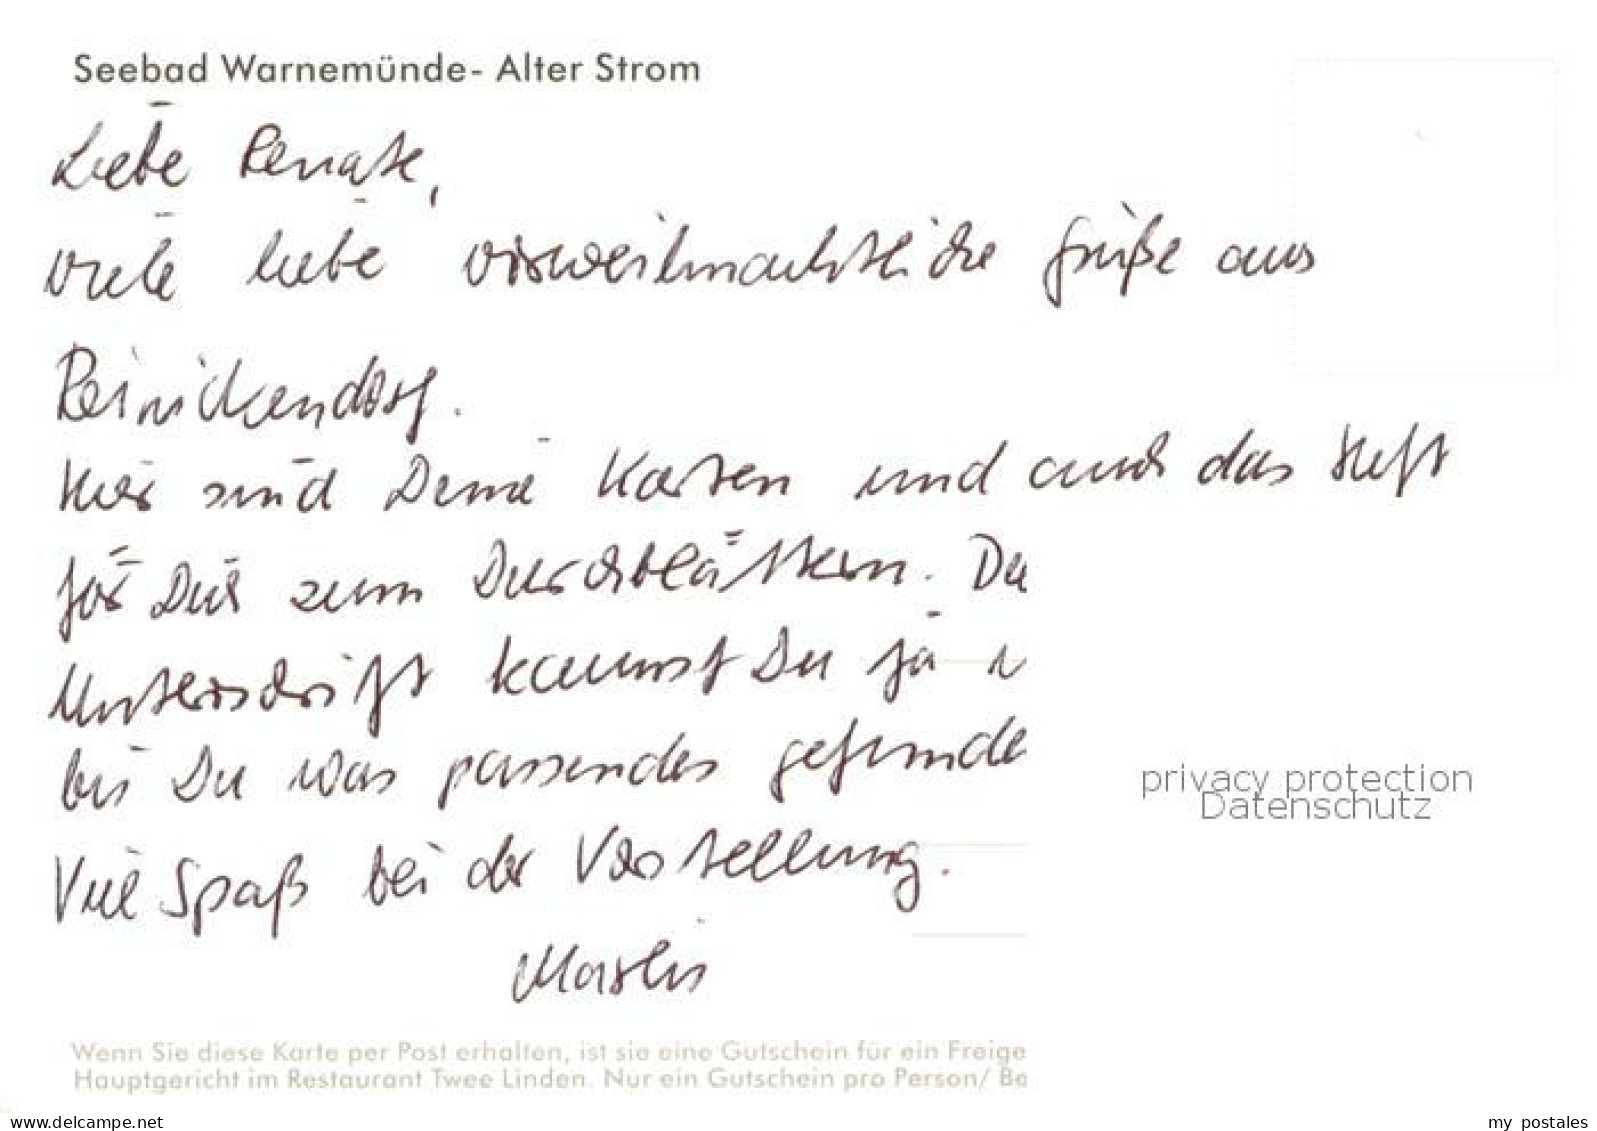 Seebad Warnemünde- Alter Strom
Liebe Renate,
viele liebe vorweihnachtliche Grüße aus
Reinickendorf.
Hier sind Deine Karten und auch das Heft
für Dich zum Durchblättern. Du
Unterschrift kannst Du ja
bis Du was passendes gefunde
Viel Spaß bei der Vorstellung.
Marlis
privacy protection
Datenschutz
Wenn Sie diese Karte per Post erhalten, ist sie eine Gutschein für ein Freige
Hauptgericht im Restaurant Twee Linden. Nur ein Gutschein pro Person/ Be
www.delcampe.net
my_postales